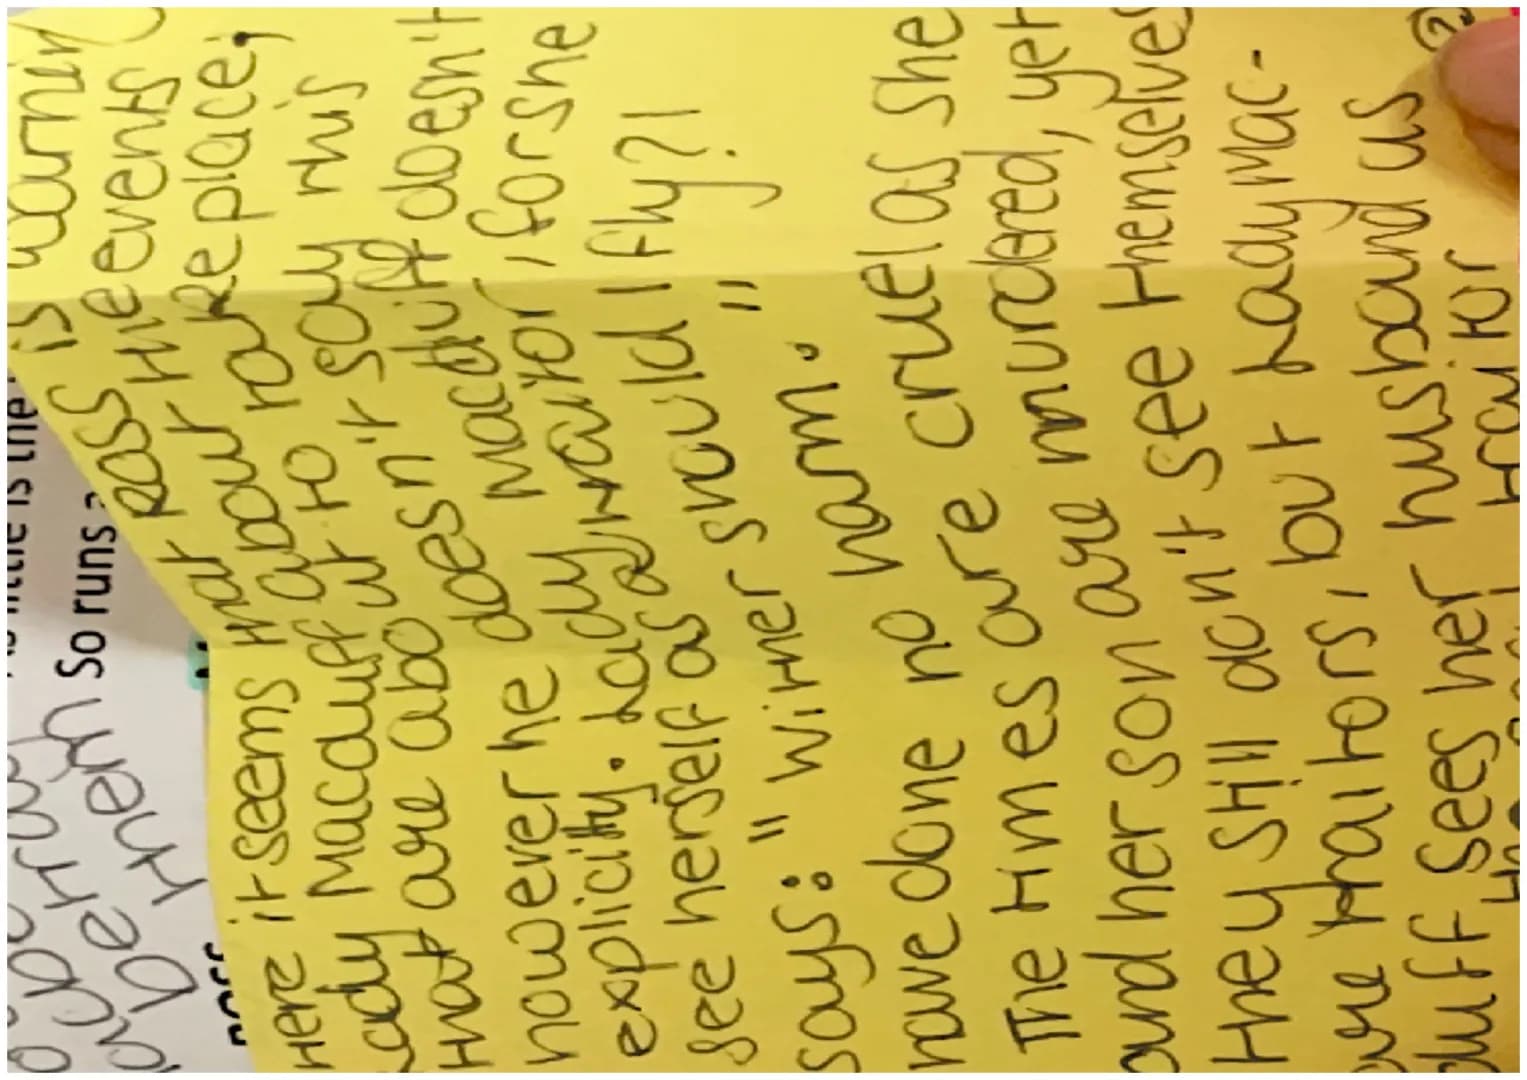 is the
So runs
them
Here it seems that Ross is warnin
Lady Macduff about the events
that are abo ut to take place,
however he does n't say this
explicitly. Lady Macduff doesn't
see herself as a traitor, for she
says: "Wither should I fly? I
have done no harm."
The times are cruel as she
and her son are murdered, yet
they still don't see themselves
are traitors, but Lady Mac-
duff sees her husband as